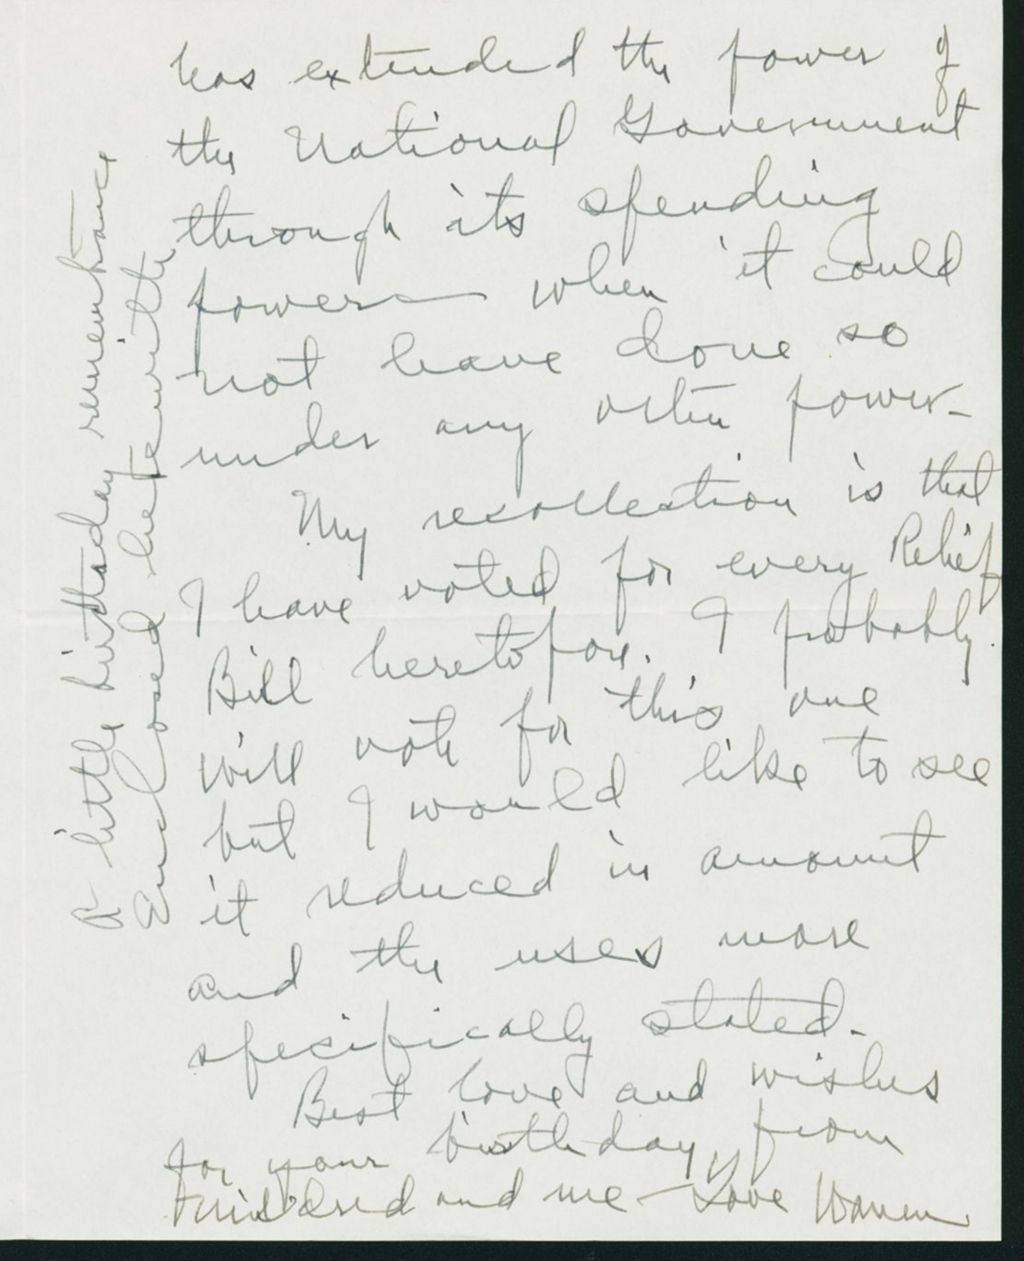 has extended the power of
the National Government
through its spending
powers when it could
not have done so
under any other power-
My recollection is that
I have voted for every Relief
Bill heretofore. I probably
will vote for this one
but I would like to see
it reduced in amount
and the uses more
specifically stated-
Best love and wishes
for your birthday, from
and me - Love Warren
A little birthday remembrance
Enclosed herewith